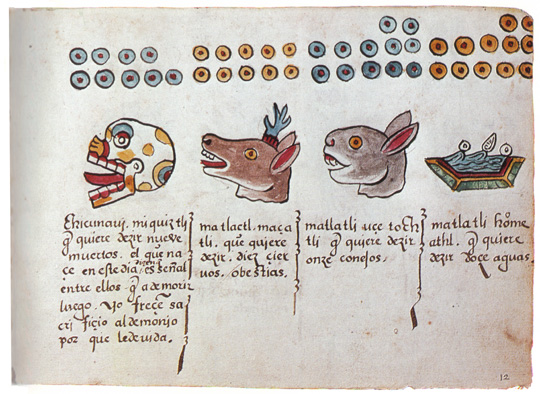 chicunaui. miquiztli
q̃ quiere dezir nueve
muertos. el que na
ce en este dia, dizen es señal
entre ellos q̃ a de morir
luego. Yo freçe sa
crificio al demonio
por que le de vida.
matlactl. maça
tli. que quiere
dezir. diez cier
uos, o bestias.
matlatli uçe toch
tli q̃ quiere dezir.
onze conejos.
matlatli home
athl. q̃ quiere
dezir doçe aguas.
12